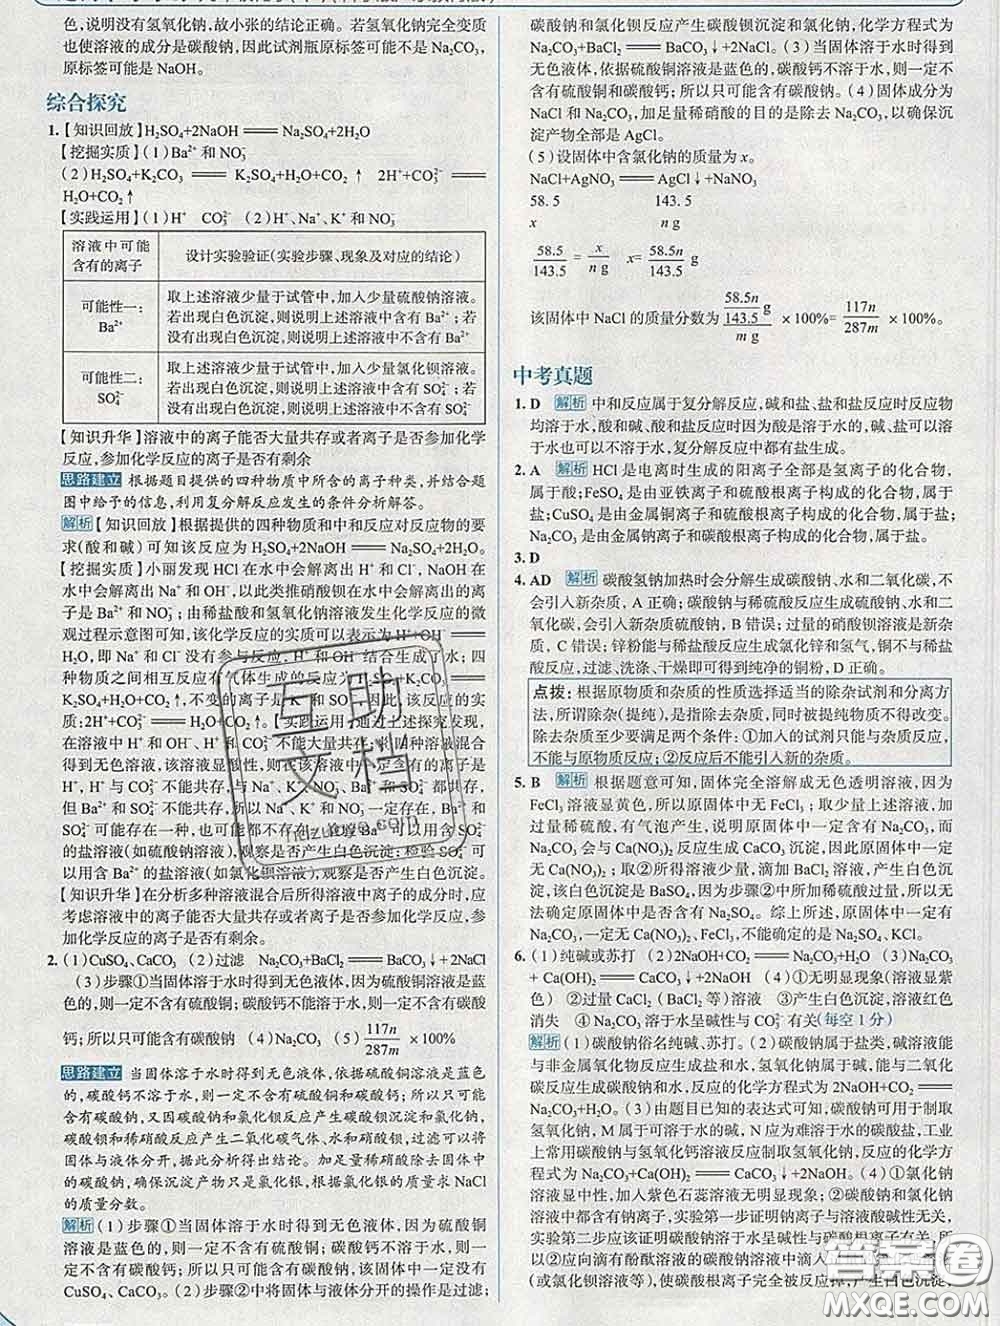 色,说明没有氢氧化钠,故小张的结论正确。若氢氧化钠完全变质
也使溶液的成分是碳酸钠,因此试剂瓶原标签可能不是 Na₂CO₃,
原标签可能是 NaOH。
综合探究
1.【知识回放】H₂SO₄+2NaOH══Na₂SO₄+2H₂O
【挖掘实质】(1)Ba²⁺和NO₃⁻
(2)H₂SO₄+K₂CO₃══K₂SO₄+H₂O+CO₂↑ 2H⁺+CO₃²⁻══
H₂O+CO₂↑
【实践运用】(1)H⁺ CO₃²⁻ (2)H⁺、Na⁺、K⁺和NO₃⁻
溶液中可能
含有的离子
设计实验验证(实验步骤、现象及对应的结论)
可能性一:
Ba²⁺
取上述溶液少量于试管中,加入少量硫酸钠溶液。
若出现白色沉淀,则说明上述溶液中含有 Ba²⁺;若
没有出现白色沉淀,则说明上述溶液中不含有 Ba²⁺
可能性二:
SO₄²⁻
取上述溶液少量于试管中,加入少量氯化钡溶液。
若出现白色沉淀,则说明上述溶液中含有 SO₄²⁻;若
没有出现白色沉淀,则说明上述溶液中不含有 SO₄²⁻
【知识升华】溶液中的离子能否大量共存或者离子是否参加化学
反应,参加化学反应的离子是否有剩余
思路建立 根据题目提供的四种物质中所含的离子种类,并结合题
图中给予的信息,利用复分解反应发生的条件分析解答。
解析【知识回放】根据提供的四种物质和中和反应对反应物的要
求(酸和碱)可知该反应为 H₂SO₄+2NaOH══Na₂SO₄+2H₂O。
【挖掘实质】小丽发现 HCl 在水中会解离出 H⁺和 Cl⁻,NaOH在
水中会解离出 Na⁺和 OH⁻,以此类推硝酸钡在水中会解离出的离
子是 Ba²⁺和 NO₃⁻;由稀盐酸和氢氧化钠溶液发生化学反应的微
观过程示意图可知,该化学反应的实质可以表示为 H⁺+OH⁻══
H₂O,即 Na⁺和 Cl⁻没有参与反应,H⁺和 OH⁻结合生成了水;四
种物质之间相互反应有气体生成的反应为 H₂SO₄+K₂CO₃══
K₂SO₄+H₂O+CO₂↑,不变的离子是 K⁺和 SO₄²⁻,故该反应的实
质为:2H⁺+CO₃²⁻══H₂O+CO₂↑。【实践运用】通过上述探究发现,
在溶液中 H⁺和 OH⁻、H⁺和 CO₃²⁻不能大量共存。四种溶液混合
无色溶液,该溶液显酸性,则
H⁺与 CO₃²⁻不能共存,所以
但 Ba²⁺和 SO₄²⁻不能共存,故 Ba²⁺和
SO₄²⁻可能存在一种,也可能都没有;检验 Ba²⁺可以用含 SO₄²⁻
的盐溶液(如硫酸钠溶液),观察是否产生白色沉淀;检验 SO₄²⁻可
以用含 Ba²⁺的盐溶液(如氯化钡溶液),观察是否产生白色沉淀。
【知识升华】在分析多种溶液混合后所得溶液中离子的成分时,应
考虑溶液中的离子能否大量共存或者离子是否参加化学反应,参
加化学反应的离子是否有剩余。
2.(1)CuSO₄、CaCO₃ (2)过滤 Na₂CO₃+BaCl₂══BaCO₃↓+2NaCl
(3)步骤①当固体溶于水时得到无色液体,因为硫酸铜溶液是蓝
色的,则一定不含有硫酸铜;碳酸钙不能溶于水,则一定不含有碳酸
钙;所以只可能含有碳酸钠 (4)Na₂CO₃ (5)117n/287m×100%
思路建立 当固体溶于水时得到无色液体,依据硫酸铜溶液是蓝色
的,碳酸钙不溶于水,则一定不含有硫酸铜和碳酸钙;所以只可能
含有碳酸钠,又因碳酸钠和氯化钡反应产生碳酸钡沉淀和氯化钠,
碳酸钡和稀硝酸反应产生二氧化碳气体、水和硝酸钡,过滤可以将
固体与液体分开,据此分析得出结论。加足量稀硝酸除去固体中
的碳酸钠,确保沉淀产物只是氯化银,根据氯化银的质量求 NaCl
的质量分数。
解析(1)步骤①当固体溶于水时得到无色液体,因为硫酸铜溶
液是蓝色的,则一定不含有硫酸铜;碳酸钙不溶于水,则一定不
含有碳酸钙;所以只可能含有碳酸钠,因此固体中一定没有
CuSO₄、CaCO₃。(2)步骤②中将固体与液体分开的操作是过滤;
碳酸钠和氯化钡反应产生碳酸钡沉淀和氯化钠,化学方程式为
Na₂CO₃+BaCl₂══BaCO₃↓+2NaCl。(3)当固体溶于水时得到
无色液体,依据硫酸铜溶液是蓝色的,碳酸钙不溶于水,则一定不
含有硫酸铜和碳酸钙;所以只可能含有碳酸钠。(4)固体成分为
NaCl 和 Na₂CO₃,加足量稀硝酸的目的是除去 Na₂CO₃,以确保沉
淀产物全部是 AgCl。
(5)设固体中含氯化钠的质量为 x。
NaCl+AgNO₃══AgCl↓+NaNO₃
58.5 143.5
x n g
58.5/143.5=x/n g x=58.5n/143.5 g
该固体中 NaCl 的质量分数为 (58.5n/143.5 g)/(m g)×100%=117n/287m×100%。
中考真题
1.D 解析 中和反应属于复分解反应,碱和盐、盐和盐反应时反应物
均溶于水,酸和碱、酸和盐反应时因为酸是溶于水的,碱、盐可以溶于
水也可以不溶于水,复分解反应中都有盐生成。
2.A 解析 HCl 是电离时生成的阳离子全部是氢离子的化合物,
属于酸;FeSO₄ 是由亚铁离子和硫酸根离子构成的化合物,属于
盐;CuSO₄ 是由金属铜离子和硫酸根离子构成的化合物,属于盐;
Na₂CO₃ 是由金属钠离子和碳酸根离子构成的化合物,属于盐。
3.D
4.AD 解析 碳酸氢钠加热时会分解生成碳酸钠、水和二氧化碳,不
会引入新杂质,A 正确;碳酸钠与稀硫酸反应生成硫酸钠、水和二
氧化碳,会引入新杂质硫酸钠,B 错误;过量的硝酸钡溶液是新杂
质,C 错误;锌粉能与稀盐酸反应生成氯化锌和氢气,铜不与稀盐
酸反应,过滤、洗涤、干燥即可得到纯净的铜粉,D 正确。
点拨:根据原物质和杂质的性质选择适当的除杂试剂和分离方
法,所谓除杂(提纯),是指除去杂质,同时被提纯物质不得改变。
除去杂质至少要满足两个条件:①加入的试剂只能与杂质反应,
不能与原物质反应;②反应后不能引入新的杂质。
5.B 解析 根据题意可知,固体完全溶解成无色透明溶液,因为
FeCl₃ 溶液显黄色,所以原固体中无 FeCl₃;取少量上述溶液,加
过量稀硫酸,有气泡产生,说明原固体中一定含有 Na₂CO₃,而
Na₂CO₃ 会与 Ca(NO₃)₂ 反应生成 CaCO₃ 沉淀,因此原固体中一定
无 Ca(NO₃)₂;取②所得溶液少量,滴加 BaCl₂ 溶液,产生白色沉
淀,该白色沉淀是 BaSO₄,因为步骤②中所加稀硫酸过量,所以无
法确定原固体中是否含有 Na₂SO₄。综上所述,原固体中一定有
Na₂CO₃,一定无 Ca(NO₃)₂、FeCl₃,不能确定的是 Na₂SO₄、KCl。
6.(1)纯碱或苏打 (2)2NaOH+CO₂══Na₂CO₃+H₂O (3)Na₂CO₃
+Ca(OH)₂══CaCO₃↓+2NaOH (4)①无明显现象(溶液显紫
色) ②过量 CaCl₂(BaCl₂ 等)溶液 ③产生白色沉淀,溶液红色
消失 ④Na₂CO₃ 溶于水呈碱性与 CO₃²⁻有关(每空 1 分)
解析(1)碳酸钠俗名纯碱、苏打。(2)碳酸钠属于盐类,碱溶液能
与非金属氧化物反应生成盐和水,氢氧化钠属于碱,能与二氧化
碳反应生成碳酸钠和水,反应的化学方程式为 2NaOH+CO₂══
Na₂CO₃+H₂O。(3)由题目已知的表达式可知,碳酸钠可用于制取
氢氧化钠,M 属于可溶于水的碱,N 应为难溶于水的碳酸盐,工业
上常用碳酸钠与氢氧化钙溶液反应制取氢氧化钠,反应的化学方
程式为 Na₂CO₃+Ca(OH)₂══CaCO₃↓+2NaOH。(4)①氯化钠
溶液显中性,加入紫色石蕊溶液无明显现象;②碳酸钠和氯化钠
溶液中都含有钠离子,实验第一步证明钠离子与溶液显碱性无关,
实验第二步应该证明碳酸钠溶液于水呈碱性与碳酸根离子有关,所
以②应向滴有酚酞溶液的碳酸钠溶液中滴入
(或氯化钡溶液等),使碳酸根离子完全被反应掉,产生白色沉淀,
互助文档
答案圈
MXQE.COM